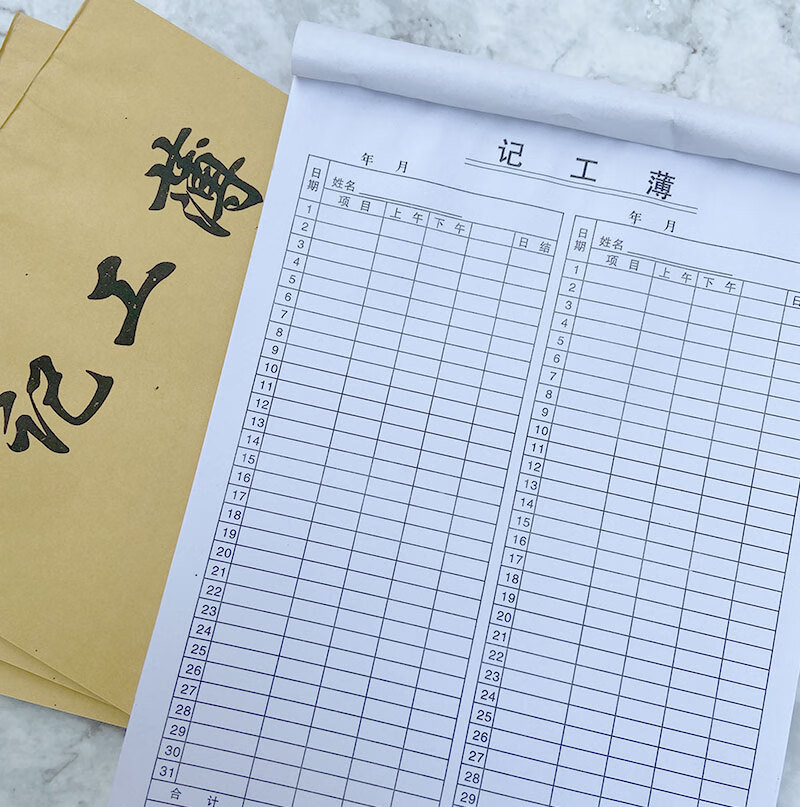 记工薄
记 工 薄
年 月
日期
姓名
项 目 上 午 下 午 日 结
1
2
3
4
5
6
7
8
9
10
11
12
13
14
15
16
17
18
19
20
21
22
23
24
25
26
27
28
29
30
31
合 计
年 月
日期
姓名
项 目 上 午 下 午 日
1
2
3
4
5
6
7
8
9
10
11
12
13
14
15
16
17
18
19
20
21
22
23
24
25
26
27
28
29